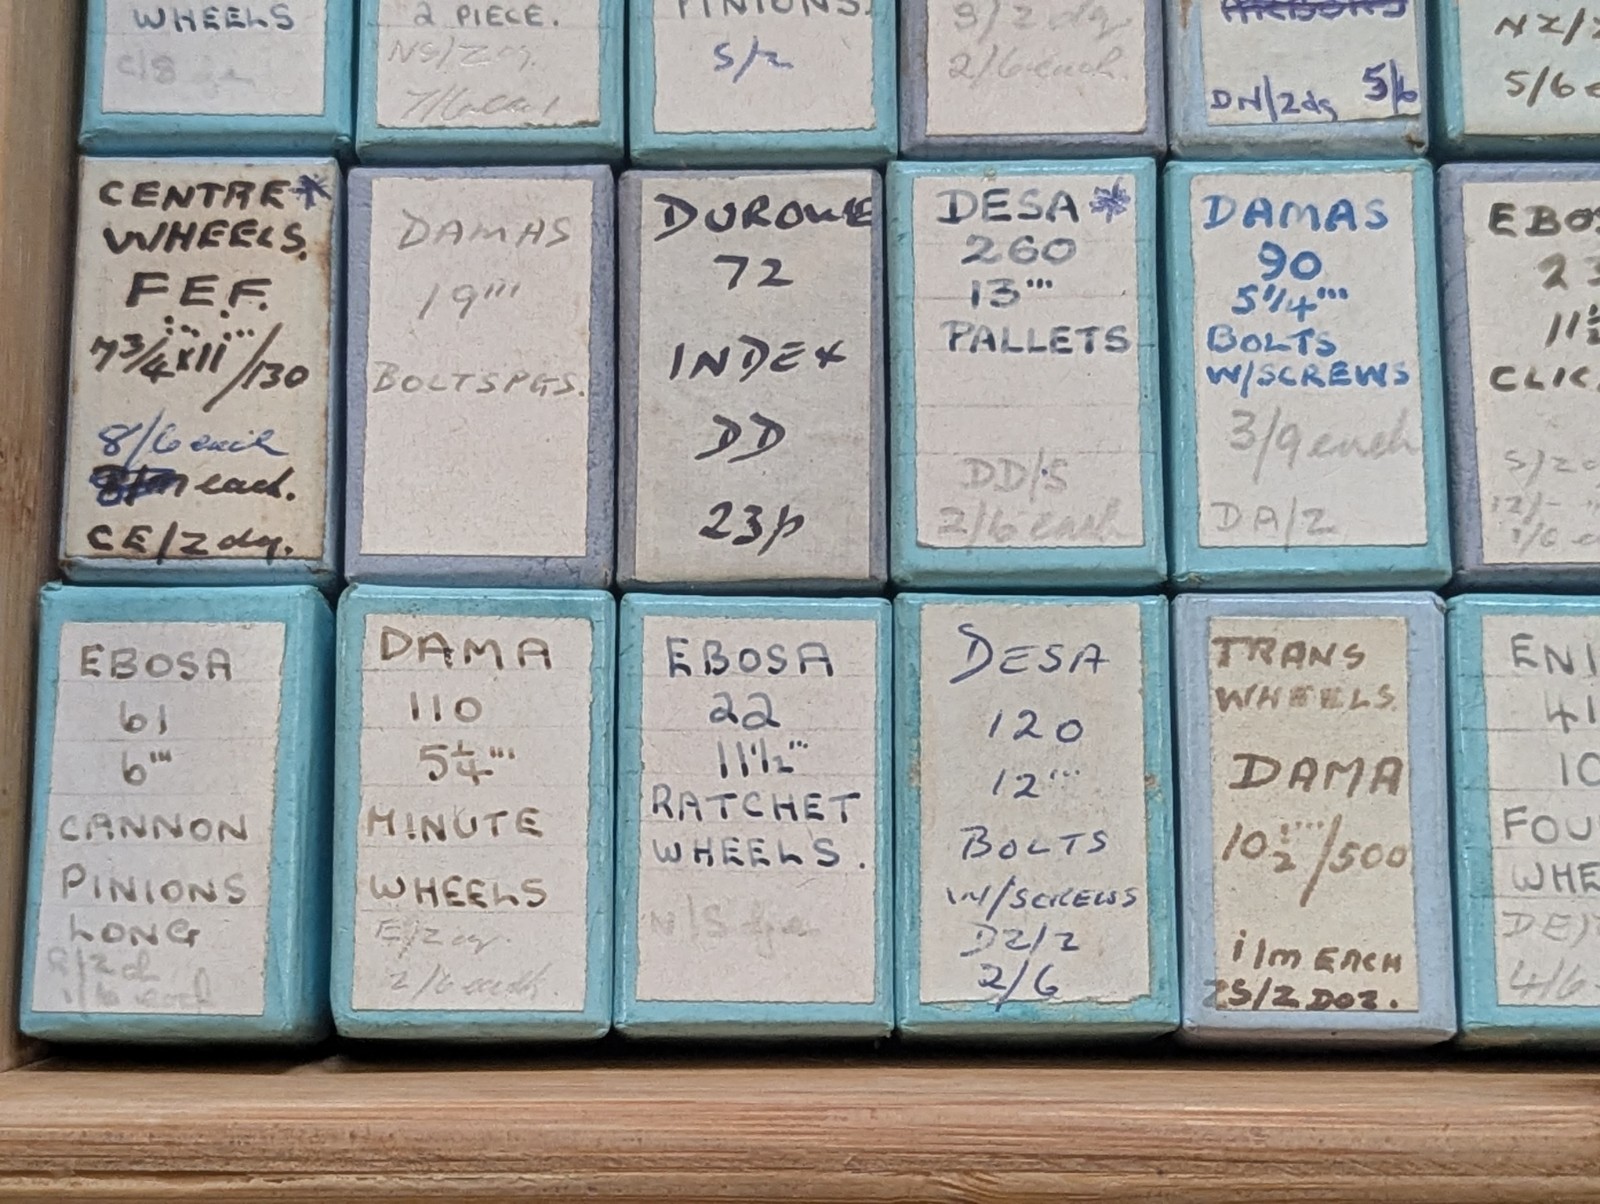 WHEELS
C/8
2 PIECE.
NS/Z
7/6 each
PINIONS.
S/Z
S/Z dg
2/6 each.
DN/2dg 5/6
NZ/
5/6 e
CENTRE*
WHEELS.
F.E.F.
7 3/4''' x 11'''/130
8/6 each
each.
CE/Z dg.
DAMAS
19'''
BOLTSPGS.
DUROWE
72
INDEX
DD
23p
DESA *
260
13'''
PALLETS
DD/S
2/6 each
DAMAS
90
5 1/4'''
BOLTS
W/SCREWS
3/9 each
DA/Z
EBOS
23
11 1/2
CLIC
S/Z d
12/- "
1/6 e
EBOSA
61
6'''
CANNON
PINIONS
LONG
1/6 each
DAMA
110
5 1/4'''
MINUTE
WHEELS
E/Z dg.
2/6 each.
EBOSA
22
11 1/2'''
RATCHET
WHEELS.
N/S
DESA
120
12'''
BOLTS
W/SCREWS
DZ/Z
2/6
TRANS
WHEELS
DAMA
10 1/2'''/500
i/m EACH
ZS/Z DOZ.
ENI
41
10
FOU
WHE
DE/
4/6